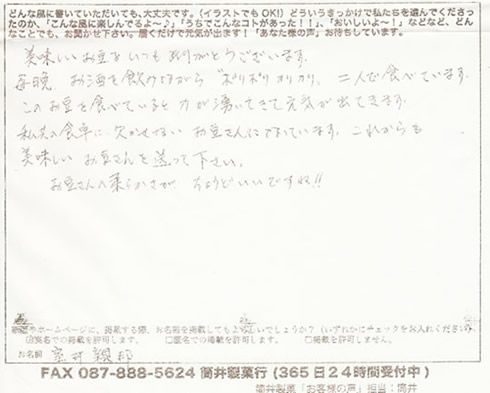 どんな風に書いていただいても、大丈夫です。(イラストでもOK!)どういうきっかけで私たちを選んでくださっ
たのか、「こんな風に楽しんでるよ～♪」「うちでこんなコトがあった!!」、「おいしいよ～!」などなど、どん
なことでも、お聞かせ下さい。届くだけで元気が出ます!「あなた様の声」お待ちしています。
美味しいお豆をいつもありがとうございます。
毎晩 お酒を飲みながら ポリポリ カリカリ、二人で食べています。
このお豆を食べていると 力が湧いてきて元気が出てきます。
私共の食卓に欠かせない お豆さんになっています。これからも
美味しい お豆さんを送って下さい。
お豆さんの柔らかさが ちょうどいいですね!!
ホームページに、掲載する際、お名前を掲載してもよろしいでしょうか?(いずれかにチェックをお入れください)
実名での掲載を許可します。 □匿名での掲載を許可します。 □掲載を許可しません。
お名前 室井
FAX 087-888-5624 筒井製菓行(365日24時間受付中)
筒井製菓「お客様の声」担当:筒井